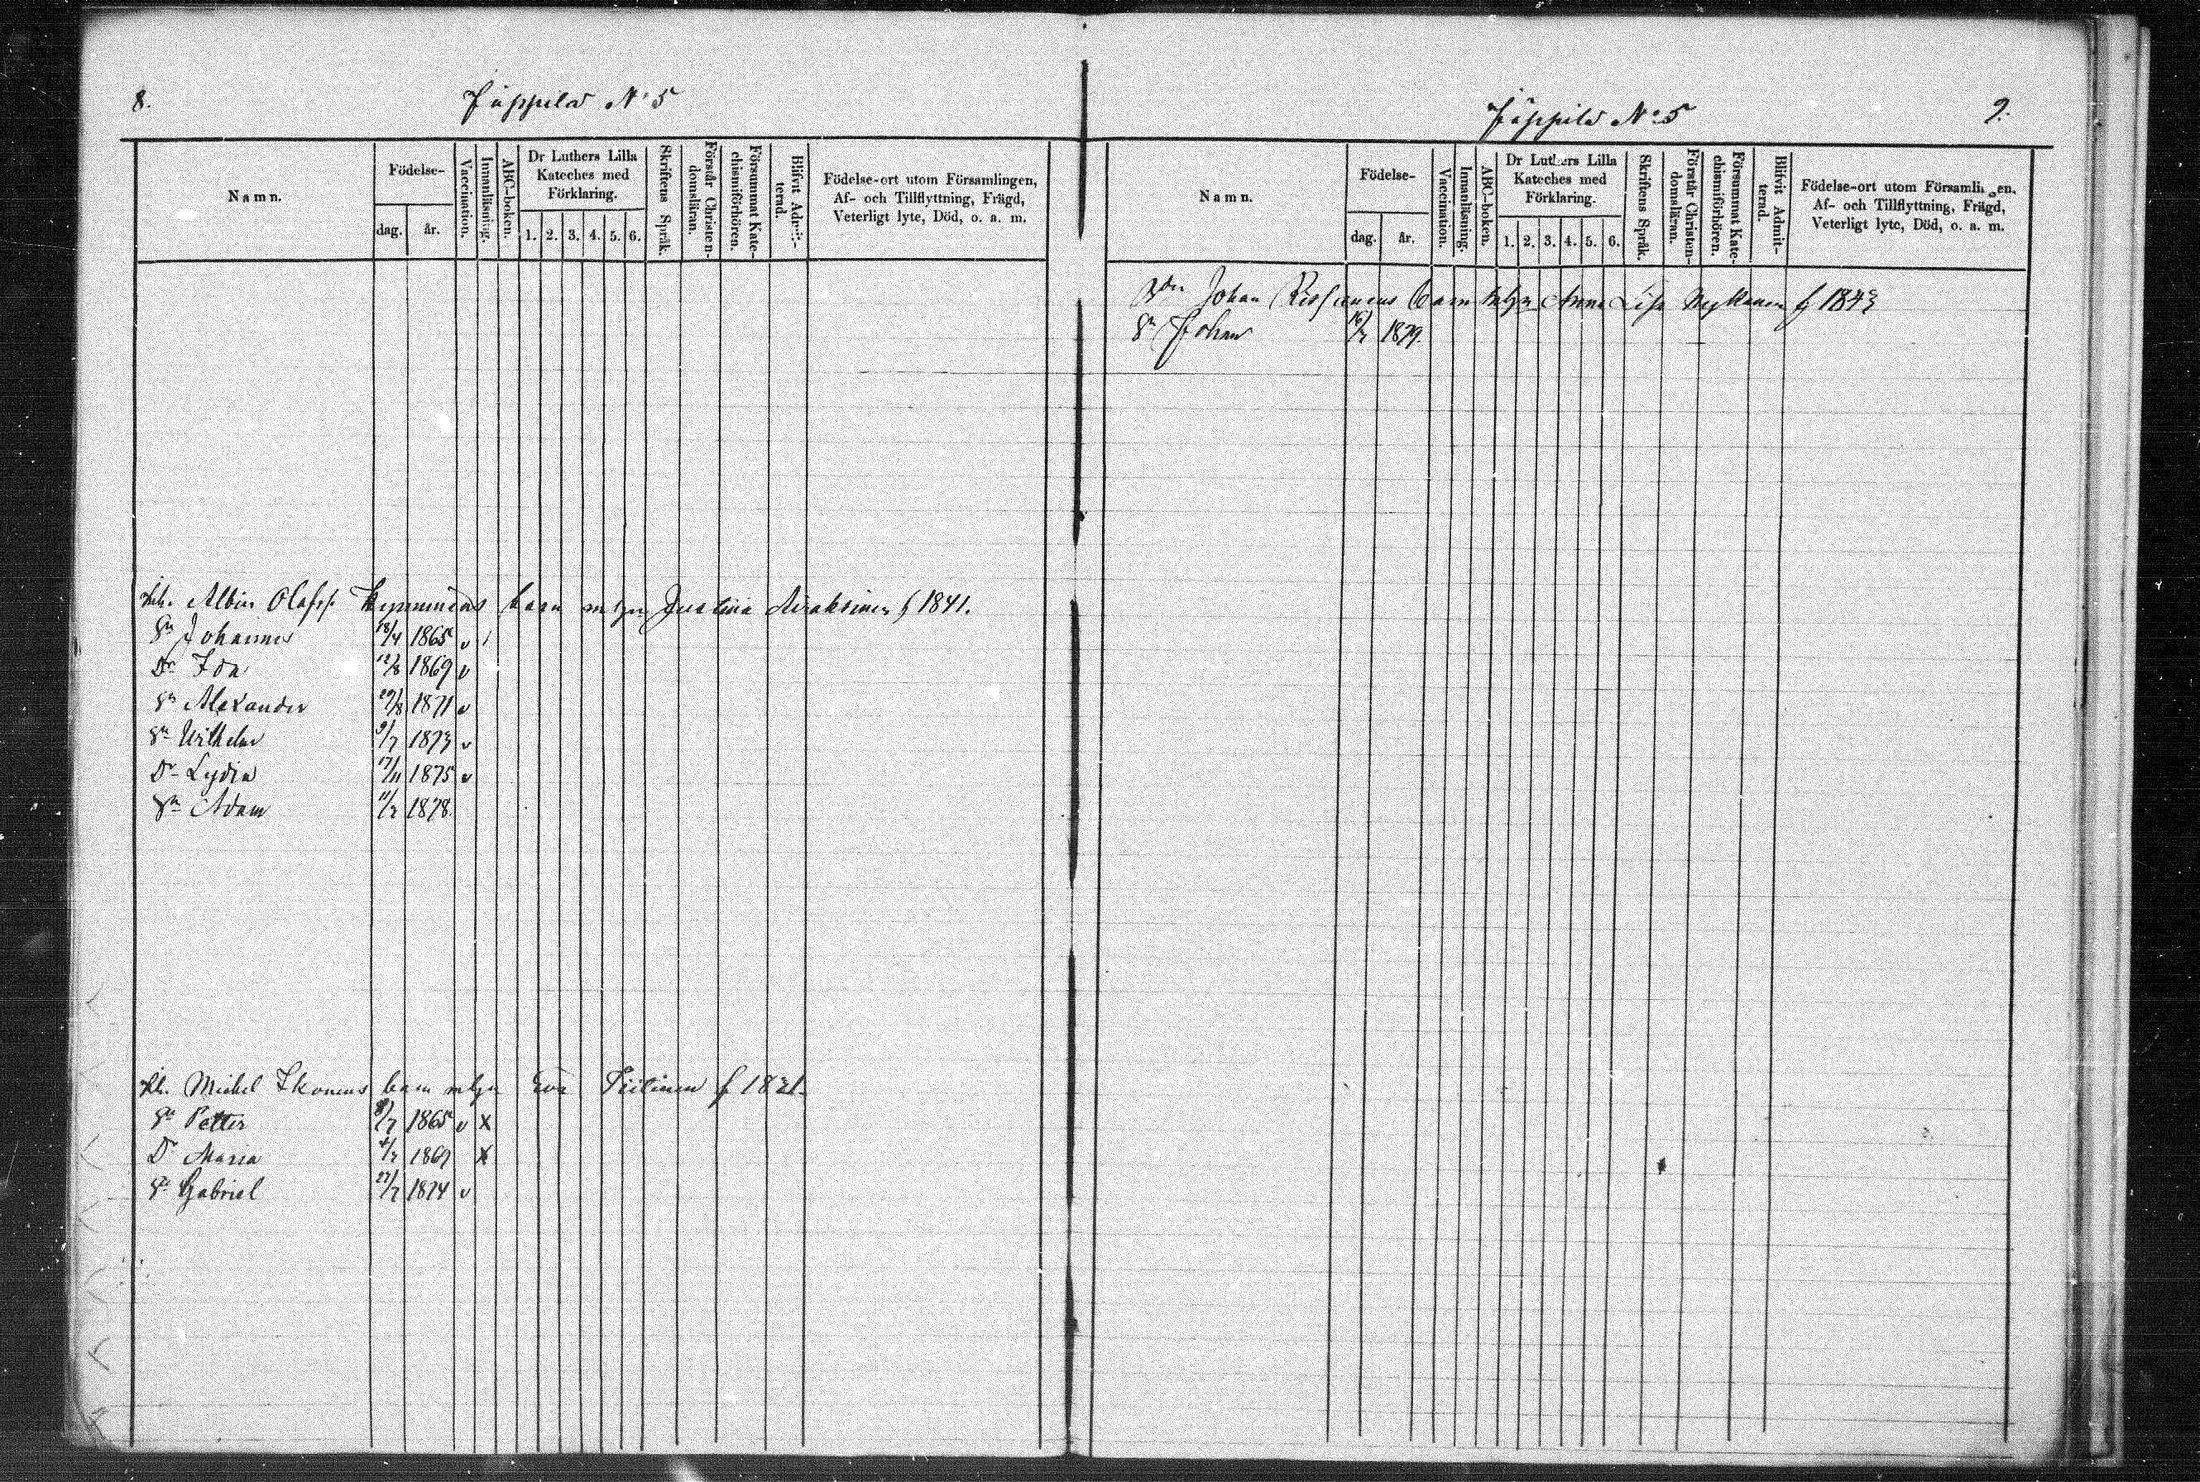 8.
Jäppilä N:o 5
Namn.
Födelse-
dag.
år.
Vaccination.
Innanläsning.
ABC-boken.
Dr Luthers Lilla
Kateches med
Förklaring.
1. 2. 3. 4. 5. 6.
Skriftens Språk.
Förstår Christen-
domsläran.
Försummat Kate-
chismiförhören.
Blifvit Admit-
terad.
Födelse-ort utom Församlingen,
Af- och Tillflyttning, Frägd,
Veterligt lyte, Död, o. a. m.
Inh. Albin Olafss. barn m hn Justina Airaksinen f 1841.
Sn Johannes 18/4 1865 v
Dr Ida 12/8 1869 v
Sn Alexander 29/8 1871 v
Sn Wilhelm 9/7 1873 v
Dr Lydia 17/11 1875 v
Sn Adam 11/2 1878.
Michel Ikonens barn m hn Eva Piitinen f 1821.
Sn Petter 8/7 1865 v x
Dr Maria 4/2 1869 x
Sn Gabriel 27/7 1874 v
Jäppilä N:o 5
9.
Namn.
Födelse-
dag.
år.
Vaccination.
Innanläsning.
ABC-boken.
Dr Luthers Lilla
Kateches med
Förklaring.
1. 2. 3. 4. 5. 6.
Skriftens Språk.
Förstår Christen-
domsläran.
Försummat Kate-
chismiförhören.
Blifvit Admit-
terad.
Födelse-ort utom Församlingen,
Af- och Tillflyttning, Frägd,
Veterligt lyte, Död, o. a. m.
Johan barn m hn Anna Lisa Nykänen f 1843
Sn Johan 16/2 1879.